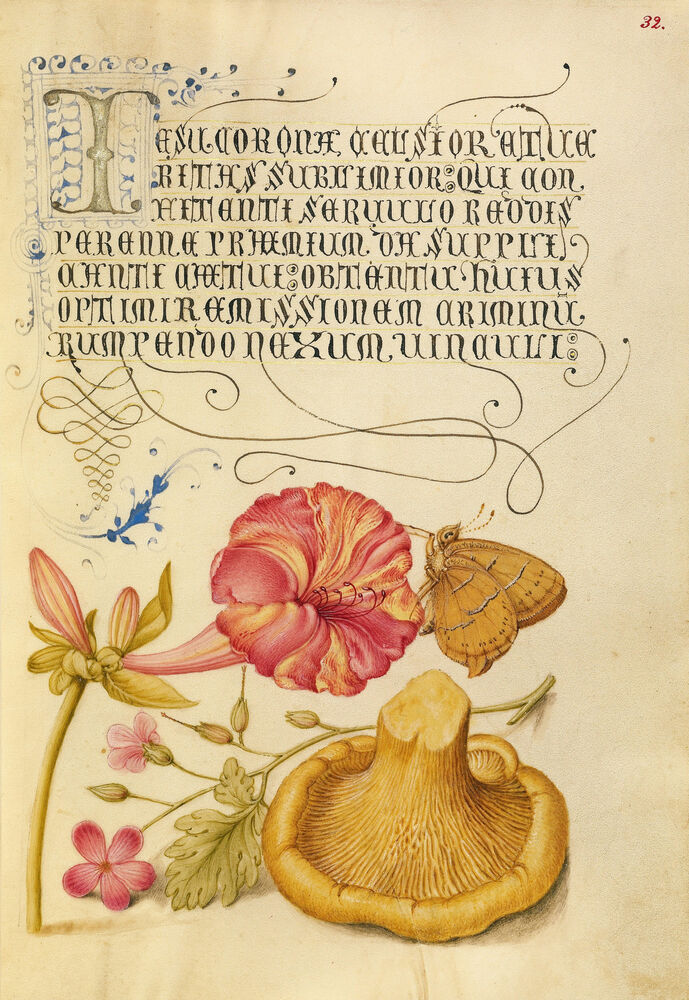 32.
IESU CORONA CELSIOR ET UE
RITAS SUBLIMIOR: QUI CON
FITENTI SERUULO REDDIS
PERENNE PRÆMIUM DA SUPPLI
CANTI CÆTUI: OBTENTU HUIUS
OPTIMI REMISSIONEM CRIMINU
RUMPENDO NEXUM UINCULI: